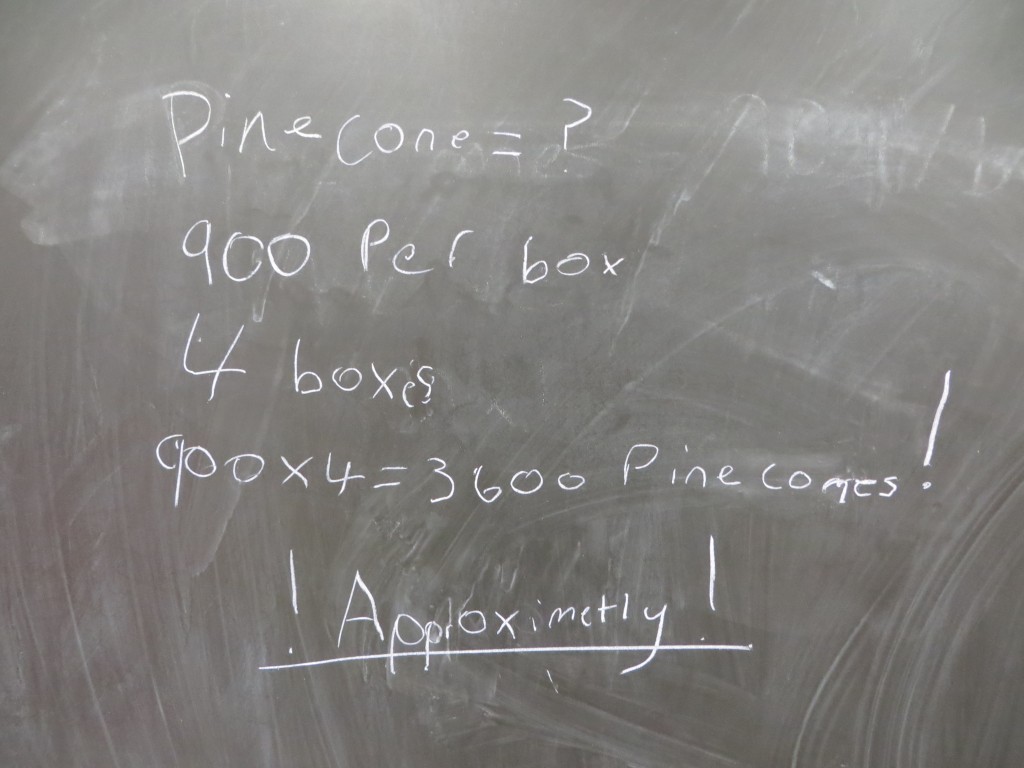 Pinecone = ?
900 Per box
4 boxes
900 x 4 = 3600 Pine cones!
! Approximetly !